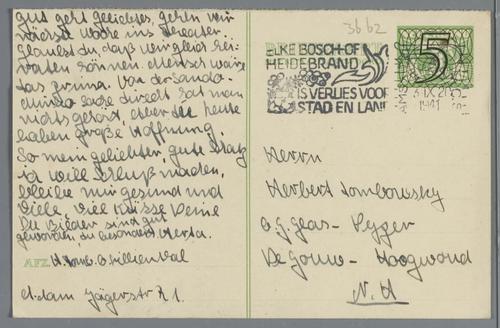 gut geht geliebtes, gehen wir
nächste Woche ins Theater
Glaubst Du, daß wir gleich hei-
raten können. Mensch wäre
das prima. Von der Sando-
Sache direkt hat man
nichts gehört, aber die heute
haben große Hoffnung.
So mein geliebter, gute Schatz
ich will Schluß machen,
bleibe mir gesund und
viele, viel Küsse Deine
Die Bilder sind gut
geworden, Du besonders Herta.
AFZ.
A.dam Jägerstr 71.
36 b2
5
ELKE BOSCH- OF
HEIDEBRAND
IS VERLIES VOOR
STAD EN LAND
IX
1941
Herrn
Herbert Tombowsky
p.a. Glas-
De Gouw - Hoogwoud
N.H